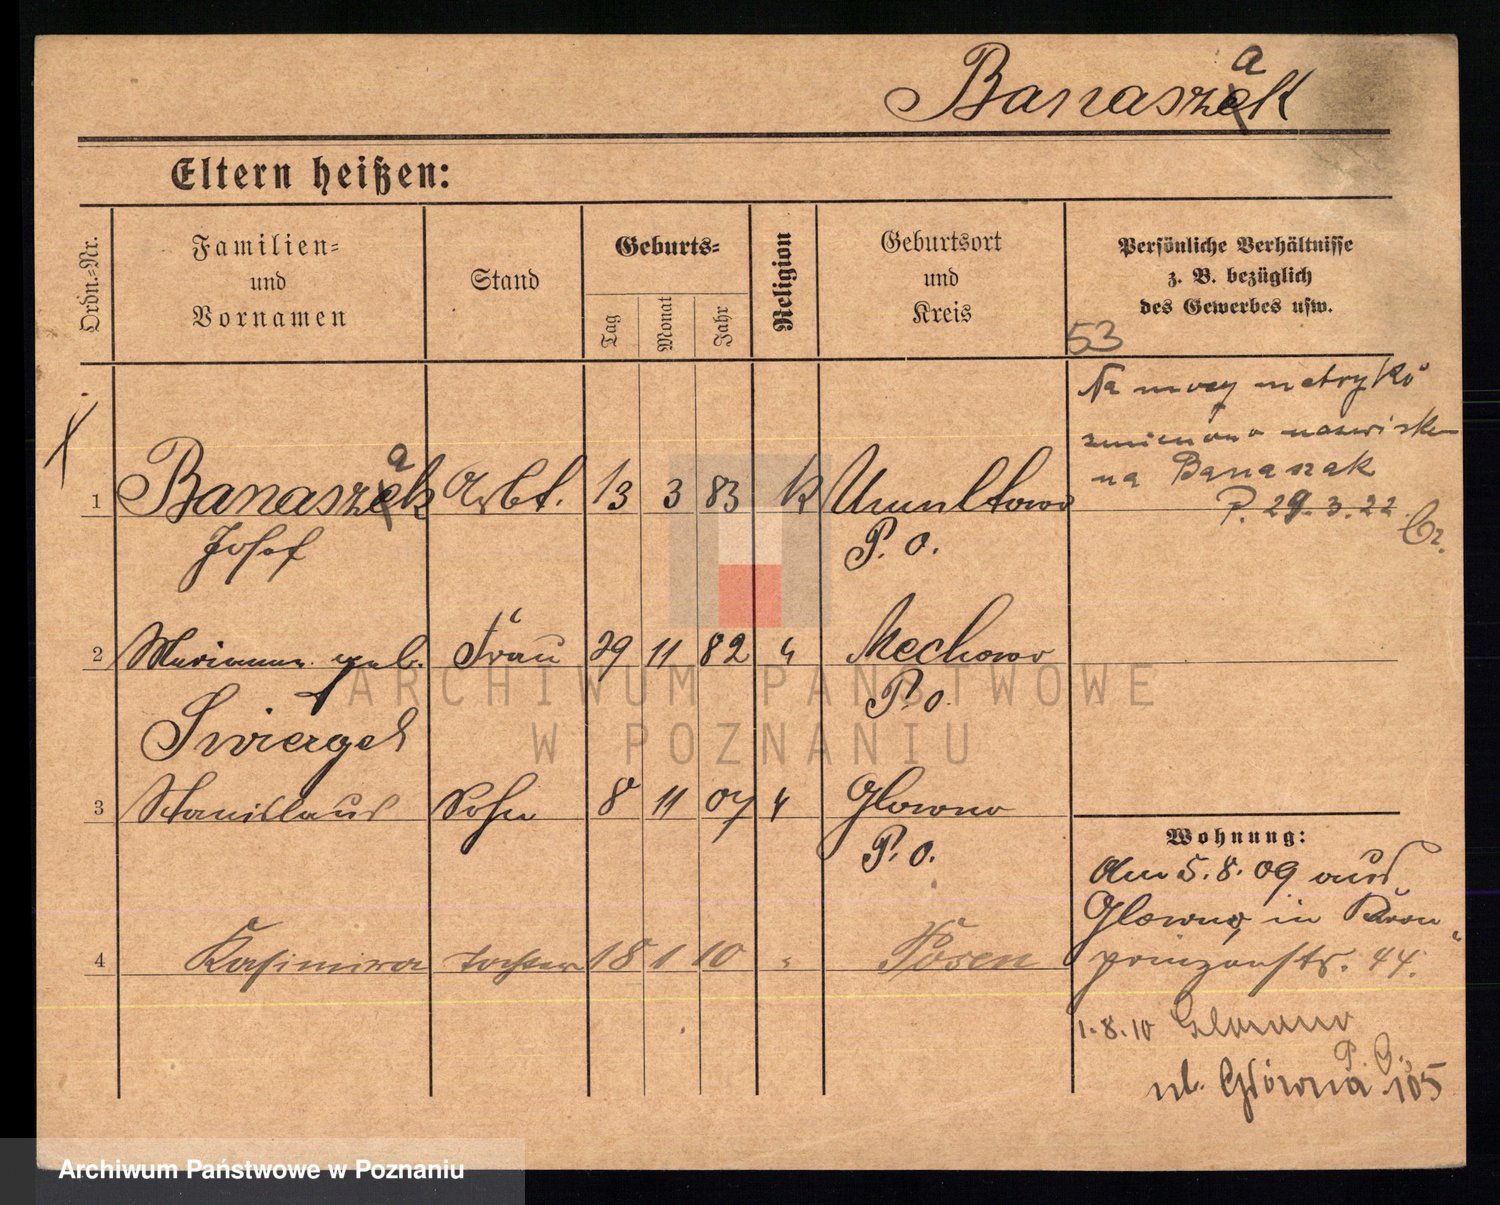 Banaszak
Eltern heißen:
Ordn.-Nr.
Familien-
und
Vornamen
Stand
Geburts-
Tag
Monat
Jahr
Religion
Geburtsort
und
Kreis
Persönliche Verhältnisse
z. B. bezüglich
des Gewerbes usw.
53
Na mocy metryki
zmieniono nazwisko
na Banaszak
P. 29.3.22
1 Banaszak Arbt. 13 3 83 k Umultowo
Josef P. O.
2 Marianna geb. Frau 29 11 82 " Mechowo
Swiergel P. O.
3 Stanislaus Sohn 8 11 07 " Glowno
P. O.
4 Kasimira Tochter 18 1 10 " Posen
Wohnung:
Am 5.8.09 aus
Glowno, in Kron-
prinzenstr. 44.
1.8.10 Glowno
P. O.
ul. Główna 105
ARCHIWUM PAŃSTWOWE
W POZNANIU
Archiwum Państwowe w Poznaniu